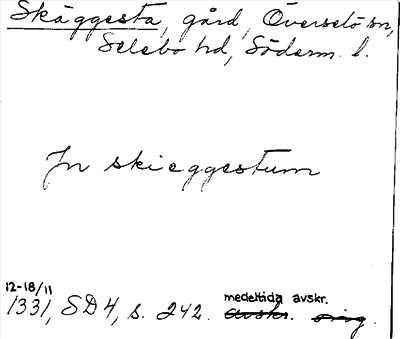 Skäggesta, gård, Överselö sn,
Selebo hd, Söderm. l.
Jn skieggestum
12-18/11
medeltida avskr.
1331, SD4, s. 242. avskr. orig.